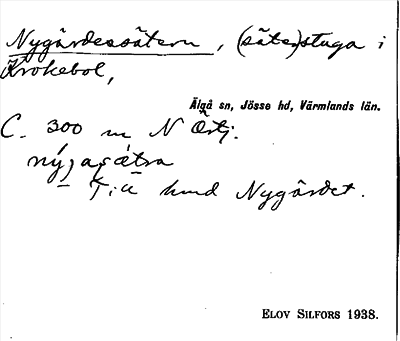 Nygårdessätern, (säter)stuga i
Krokebol,
Älgå sn, Jösse hd, Värmlands län.
C. 300 m N Östj.
Till hmd Nygårdet.
ELOV SILFORS 1938.